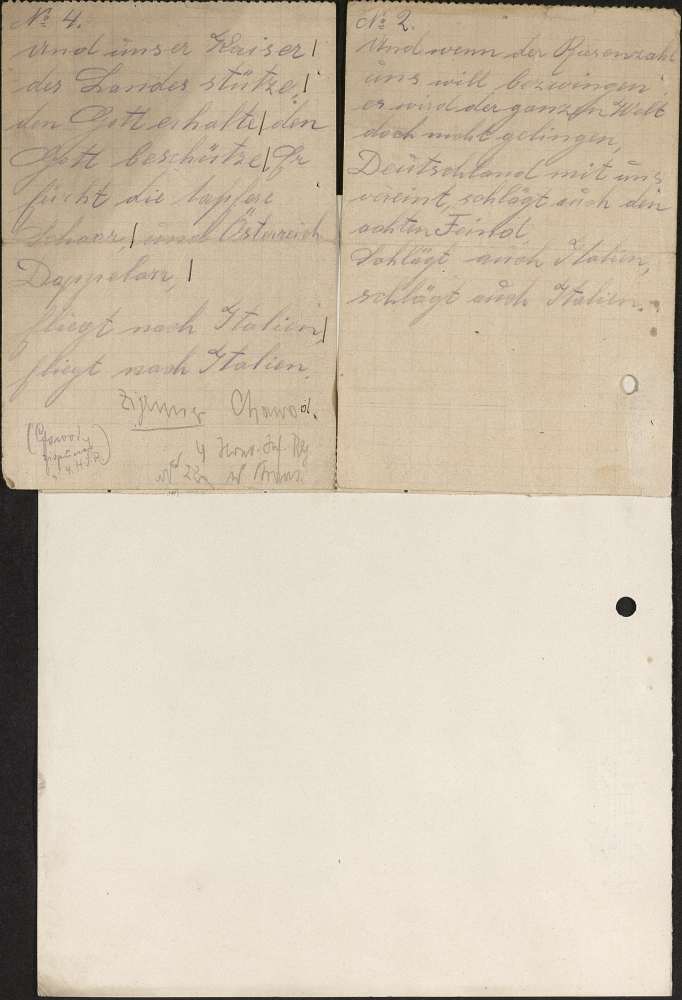 № 4.
und unser Kaiser|
des Landes stütze,|
den Gott erhalte|den
Gott beschütze|Er
fücht die tapfere
Schaar,| und Österreich
Doppelaar,|
fliegt nach Italien,|
fliegt nach Italien.
Zigeuner
4
№ 2.
Und wenn der Riesenzahl
uns will bezwingen
es wird der ganzen Welt
doch nicht gelingen,
Deutschland mit uns
vereint, schlägt auch den
achten Feind.
Schlägt auch Italien,
schlägt auch Italien.